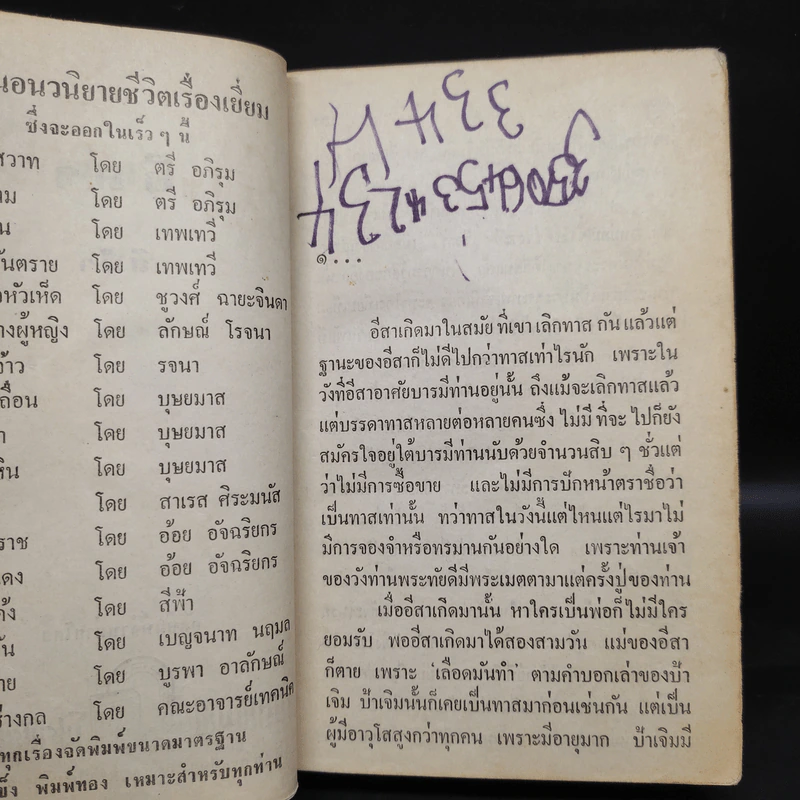 นอนวนิยายชีวิตเรื่องเยี่ยม
ซึ่งจะออกในเร็ว ๆ นี้
สวาท โดย ตรี อภิรุม
โดย ตรี อภิรุม
โดย เทพเทวี
ันตราย โดย เทพเทวี
หัวเห็ด โดย ชูวงศ์ ฉายะจินดา
างผู้หญิง โดย ลักษณ์ โรจนา
จ้าว โดย รจนา
ถื่อน โดย บุษยมาส
โดย บุษยมาส
หิน โดย บุษยมาส
โดย สาเรส ศิระมนัส
ราช โดย อ้อย อัจฉริยกร
แดง โดย อ้อย อัจฉริยกร
โดย สีฟ้า
โดย เบญจนาท นฤมล
าย โดย บูรพา อาลักษณ์
ร่างกล โดย คณะอาจารย์เทคนิค
ทุกเรื่องจัดพิมพ์ขนาดมาตรฐาน
ข็ง พิมพ์ทอง เหมาะสำหรับทุกท่าน
334
234
๑...
อีสาเกิดมาในสมัย ที่เขา เลิกทาส กัน แล้วแต่
ฐานะของอีสาก็ไม่ดีไปกว่าทาสเท่าไรนัก เพราะใน
วังที่อีสาอาศัยบารมีท่านอยู่นั้น ถึงแม้จะเลิกทาสแล้ว
แต่บรรดาทาสหลายต่อหลายคนซึ่ง ไม่มี ที่จะ ไปก็ยัง
สมัครใจอยู่ใต้บารมีท่านนับด้วยจำนวนสิบ ๆ ชั่วแต่
ว่าไม่มีการซื้อขาย และไม่มีการปักหน้าตราชื่อว่า
เป็นทาสเท่านั้น ทว่าทาสในวังนี้แต่ไหนแต่ไรมาไม่
มีการจองจำหรือทรมานกันอย่างใด เพราะท่านเจ้า
ของวังท่านพระทัยดีมีพระเมตตามาแต่ครั้งปู่ของท่าน
เมื่ออีสาเกิดมานั้น หาใครเป็นพ่อก็ไม่มีใคร
ยอมรับ พออีสาเกิดมาได้สองสามวัน แม่ของอีสา
ก็ตาย เพราะ ‘เลือดมันทำ’ ตามคำบอกเล่าของป้า
เจิม ป้าเจิมนั้นก็เคยเป็นทาสมาก่อนเช่นกัน แต่เป็น
ผู้มีอาวุโสสูงกว่าทุกคน เพราะมีอายุมาก ป้าเจิมมี